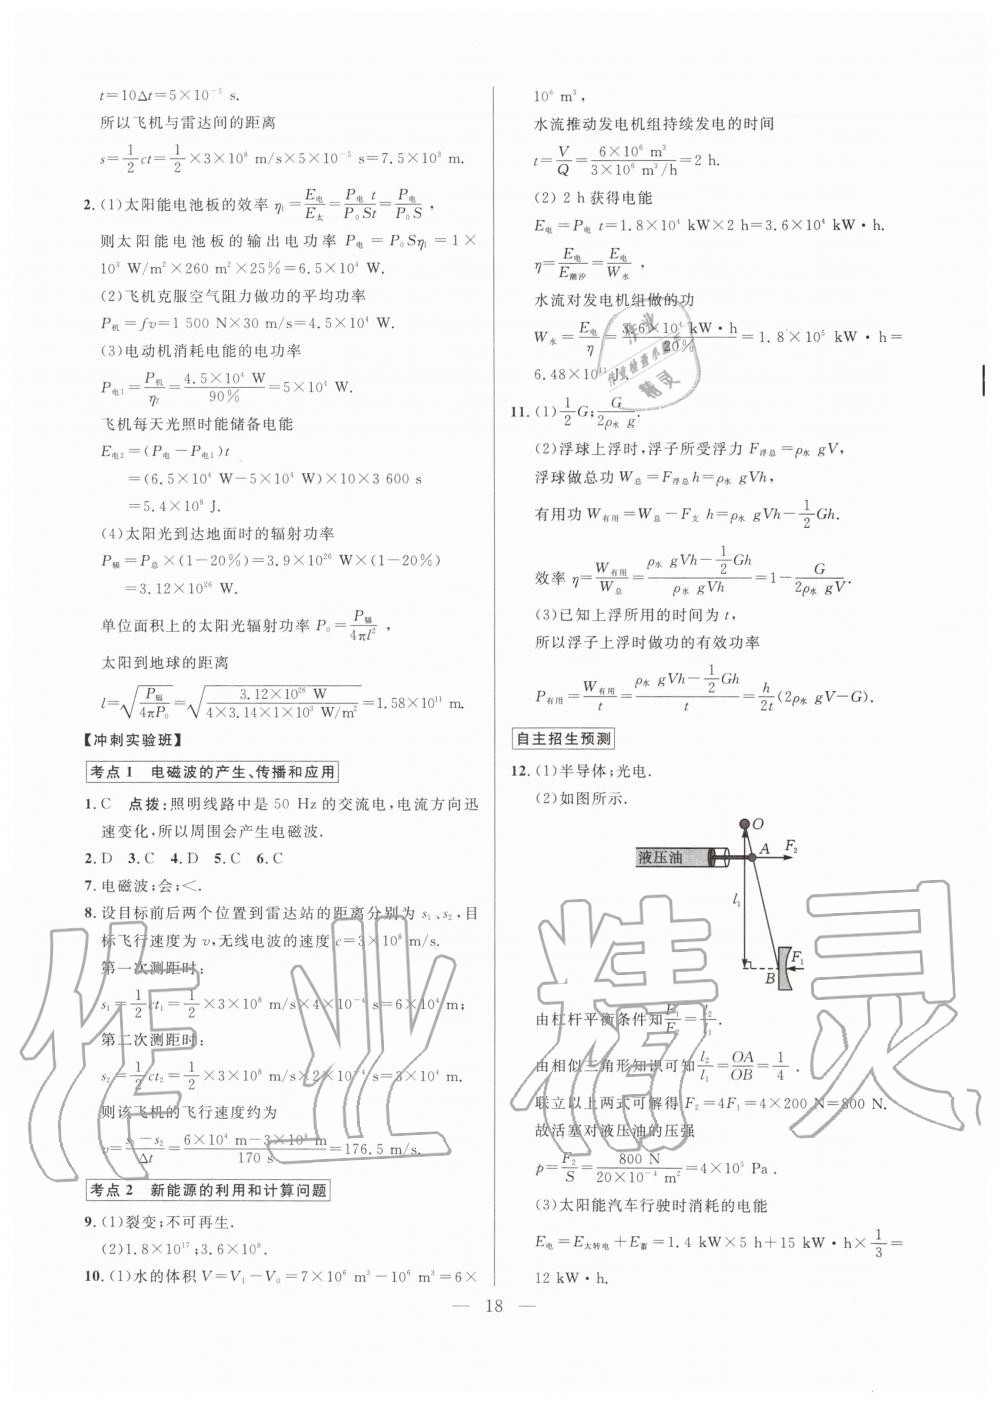 t=10Δt=5×10⁻⁵ s.
所以飞机与雷达间的距离
s=1/2 ct=1/2×3×10⁸ m/s×5×10⁻⁵ s=7.5×10³ m.
2. (1)太阳能电池板的效率 η₁=E电/E太=P电 t/P₀St=P电/P₀S,
则太阳能电池板的输出电功率 P电=P₀Sη₁=1×
10³ W/m²×260 m²×25%=6.5×10⁴ W.
(2)飞机克服空气阻力做功的平均功率
P机=fv=1 500 N×30 m/s=4.5×10⁴ W.
(3)电动机消耗电能的电功率
P电1=P机/η₂=4.5×10⁴ W/90%=5×10⁴ W.
飞机每天光照时能储备电能
E电2=(P电-P电1)t
=(6.5×10⁴ W-5×10⁴ W)×10×3 600 s
=5.4×10⁸ J.
(4)太阳光到达地面时的辐射功率
P辐=P总×(1-20%)=3.9×10²⁶ W×(1-20%)
=3.12×10²⁶ W.
单位面积上的太阳光辐射功率 P₀=P辐/4πl²,
太阳到地球的距离
l=√(P辐/4πP₀)=√(3.12×10²⁶ W/4×3.14×1×10³ W/m²)=1.58×10¹¹ m.
【冲刺实验班】
考点 1 电磁波的产生、传播和应用
1. C 点拨:照明线路中是 50 Hz 的交流电,电流方向迅
速变化,所以周围会产生电磁波.
2. D 3. C 4. D 5. C 6. C
7. 电磁波;会;<.
8. 设目标前后两个位置到雷达站的距离分别为 s₁、s₂,目
标飞行速度为 v,无线电波的速度 c=3×10⁸ m/s.
第一次测距时:
s₁=1/2 ct₁=1/2×3×10⁸ m/s×4×10⁻⁴ s=6×10⁴ m;
第二次测距时:
s₂=1/2 ct₂=1/2×3×10⁸ m/s×2×10⁻⁴ s=3×10⁴ m.
则该飞机的飞行速度约为
v=s₁-s₂/Δt=6×10⁴ m-3×10⁴ m/170 s=176.5 m/s.
考点 2 新能源的利用和计算问题
9. (1)裂变;不可再生.
(2)1.8×10¹⁷;3.6×10⁸.
10. (1)水的体积 V=V₁-V₀=7×10⁶ m³-10⁶ m³=6×
10⁶ m³,
水流推动发电机组持续发电的时间
t=V/Q=6×10⁶ m³/3×10⁶ m³/h=2 h.
(2) 2 h 获得电能
E电=P电 t=1.8×10⁴ kW×2 h=3.6×10⁴ kW·h.
η=E电/E潮汐=E电/W水,
水流对发电机组做的功
W水=E电/η=3.6×10⁴ kW·h/20%=1.8×10⁵ kW·h=
6.48×10¹¹ J.
11. (1)1/2 G;G/2ρ水 g.
(2)浮球上浮时,浮子所受浮力 F浮总=ρ水 gV,
浮球做总功 W总=F浮总 h=ρ水 gVh,
有用功 W有用=W总-F支 h=ρ水 gVh-1/2 Gh.
效率 η=W有用/W总=(ρ水 gVh-1/2 Gh)/ρ水 gVh=1-G/2ρ水 gV.
(3)已知上浮所用的时间为 t,
所以浮子上浮时做功的有效功率
P有用=W有用/t=(ρ水 gVh-1/2 Gh)/t=h/2t(2ρ水 gV-G).
自主招生预测
12. (1)半导体;光电.
(2)如图所示.
O
液压油
A
F₂
l₁
F₁
B
由杠杆平衡条件知F₁/F₂=l₂/l₁.
由相似三角形知识可知l₂/l₁=OA/OB=1/4.
联立以上两式可解得 F₂=4F₁=4×200 N=800 N.
故活塞对液压油的压强
p=F₂/S=800 N/20×10⁻⁴ m²=4×10⁵ Pa.
(3)太阳能汽车行驶时消耗的电能
E电=E太转电+E蓄=1.4 kW×5 h+15 kW·h×1/3=
12 kW·h.
— 18 —
作业精灵